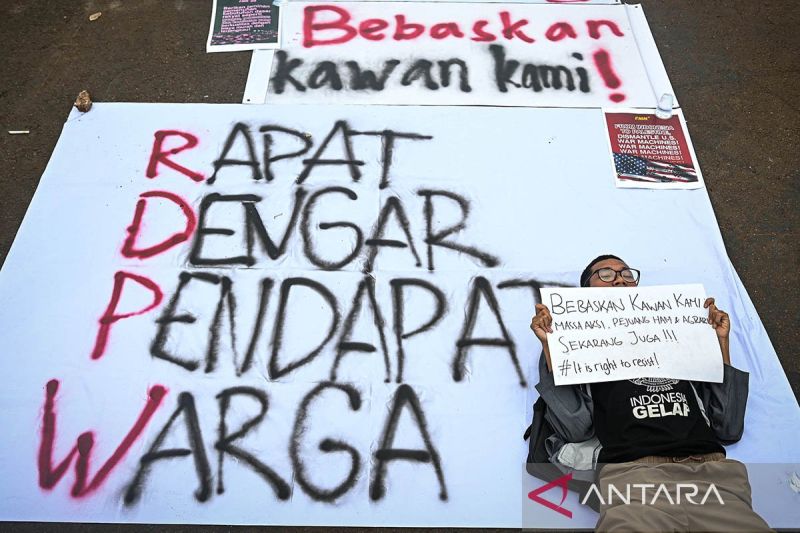 Bebaskan
kawan kami!
FROM INDONESIA
TO PALESTINE,
DISMANTLE U.S.
WAR MACHINES!
WAR MACHINES!
WAR MACHINES!
RAPAT
DENGAR
PENDAPAT
WARGA
BEBASKAN KAWAN KAMI
MASSA AKSI, PEJUANG HAM & AGRARIA
SEKARANG JUGA!!!
#It is right to resist!
INDONESIA
GELAP
ANTARA